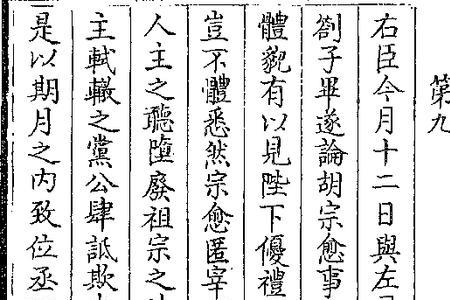 第九
右臣今月十二日與左
劄子畢遂論胡宗愈事
體貌有以見陛下優禮
豈不體悉然宗愈匿宰
人主之聽墮廢祖宗之
主軾轍之黨公肆詆欺
是以期月之内致位丞